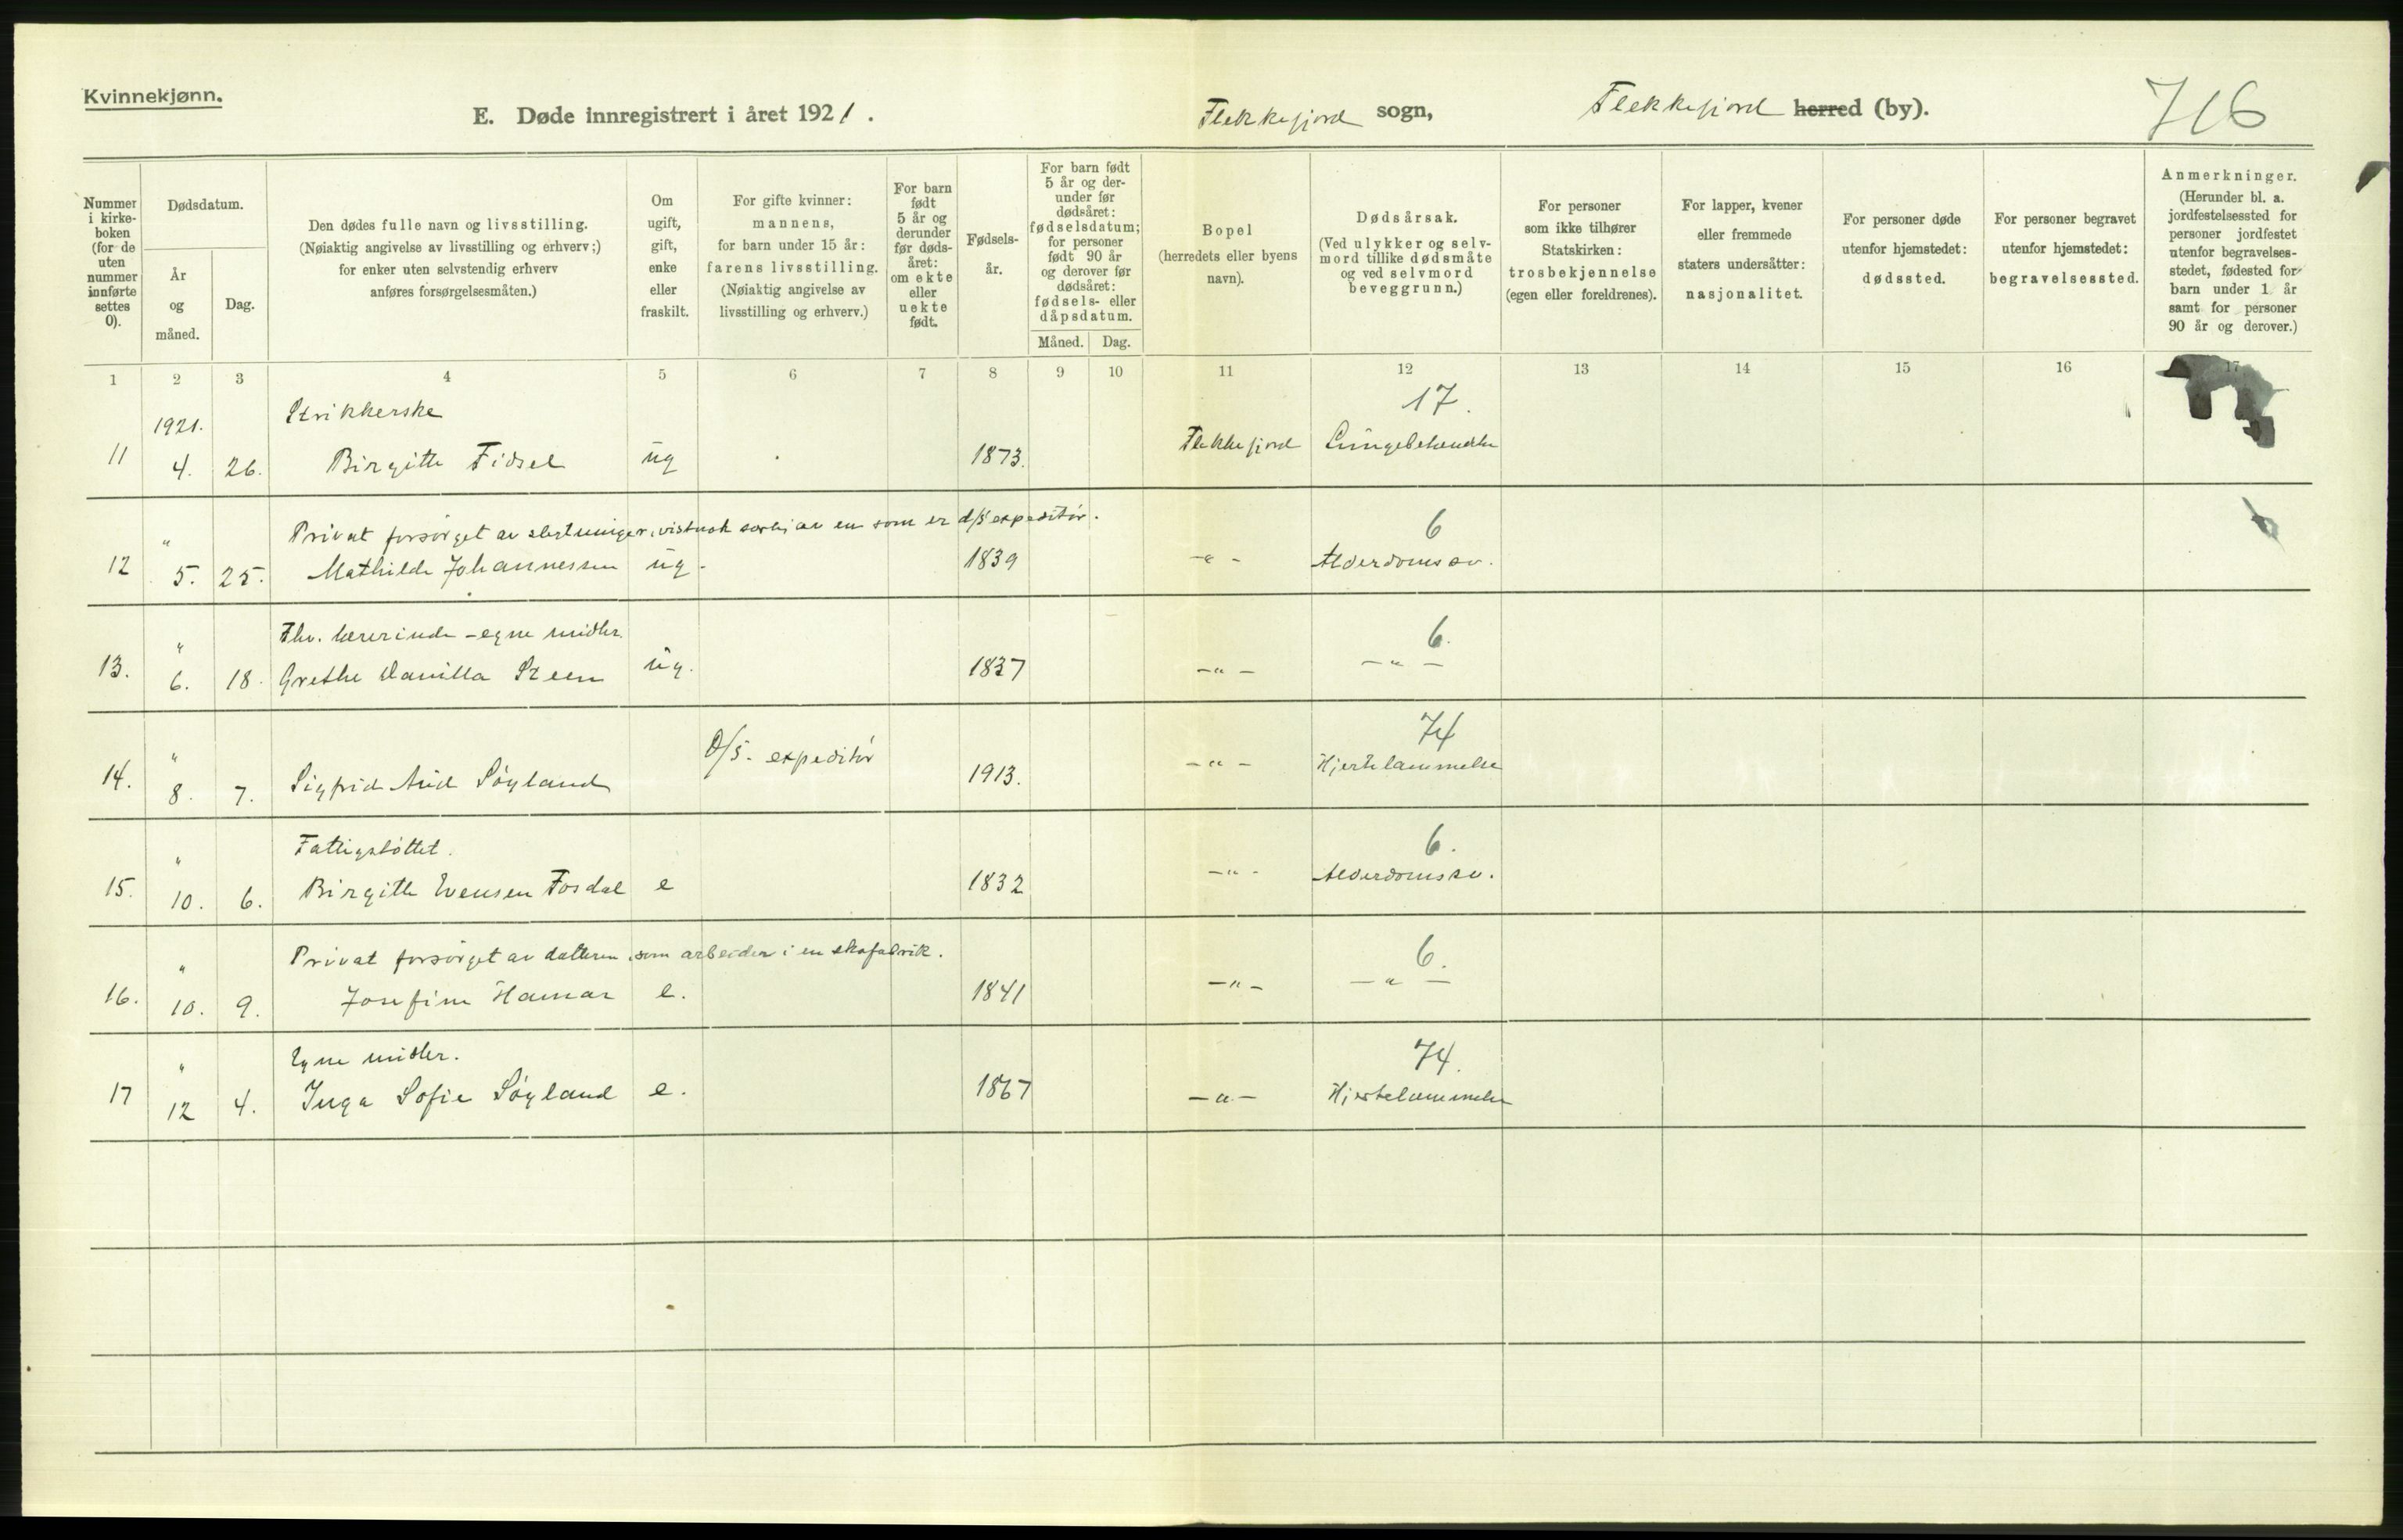 Kvinnekjønn.
E. Døde innregistrert i året 1921.
Flekkefjord sogn,
Flekkefjord herred (by).
716
Nummer i kirkeboken (for de uten nummer innførte settes 0).
Dødsdatum.
År og måned.
Dag.
Den dødes fulle navn og livsstilling.
(Nøiaktig angivelse av livsstilling og erhverv;)
for enker uten selvstendig erhverv
anføres forsørgelsesmåten.)
Om ugift, gift, enke eller fraskilt.
For gifte kvinner:
mannens,
for barn under 15 år:
farens livsstilling.
(Nøiaktig angivelse av
livsstilling og erhverv.)
For barn født 5 år og derunder før dødsåret: om ekte eller uekte født.
Fødselsår.
For barn født 5 år og derunder før dødsåret: fødselsdatum; for personer født 90 år og derover før dødsåret: fødsels- eller dåpsdatum.
Måned.
Dag.
Bopel
(herredets eller byens
navn).
Dødsårsak.
(Ved ulykker og selvmord tillike dødsmåte og ved selvmord beveggrunn.)
For personer
som ikke tilhører
Statskirken:
trosbekjennelse
(egen eller foreldrenes).
For lapper, kvener
eller fremmede
staters undersåtter:
nasjonalitet.
For personer døde
utenfor hjemstedet:
dødssted.
For personer begravet
utenfor hjemstedet:
begravelsessted.
Anmerkninger.
(Herunder bl. a.
jordfestelsessted for
personer jordfestet
utenfor begravelses-
stedet, fødested for
barn under 1 år
samt for personer
90 år og derover.)
1 2 3 4 5 6 7 8 9 10 11 12 13 14 15 16 17
1921. Strikkerske 17.
11 4. 26. Birgitte Fidsel ug 1873. Flekkefjord Lungebetændelse
" Privat forsørget av slegtninger, vistnok av en som er d/s expeditør. 6
12 5. 25. Mathilde Johannessen ug. 1839 -"- Alderdomssv.
" Fhv. lærerinde - egne midler. 6.
13. 6. 18. Grethe Danilla Steen ug. 1837 -"- -"-
" D/S. expeditør 74
14. 8. 7. Sigfrid Aud Søyland 1913. -"- Hjertelammelse
" Fattigstøttet. 6.
15. 10. 6. Birgitte Evensen Fosdal e 1832 -"- Alderdomssv.
" Privat forsørget av datteren, som arbeider i en skofabrik. 6.
16. 10. 9. Josefine Hamar e. 1841 -"- -"-
" Egne midler. 74.
17 12 4. Inga Sofie Søyland e. 1867 -"- Hjertelammelse